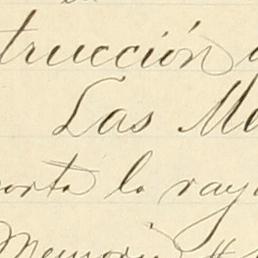 trucción
Las M
orta la raya
Memoria